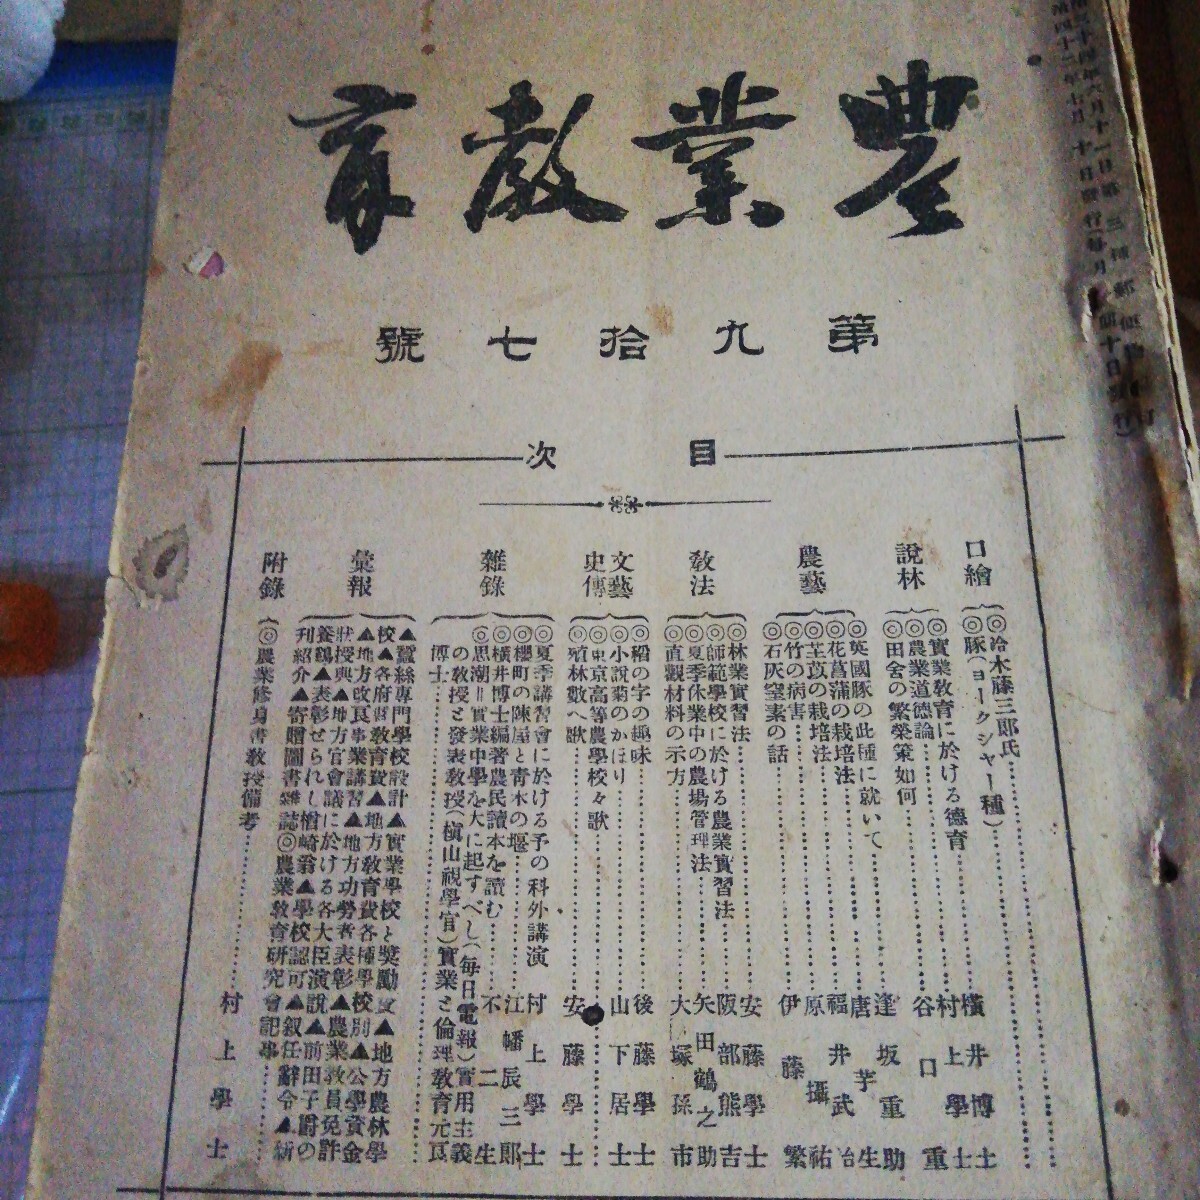 農業教育
第九拾七號
目次
口繪
◎冷木藤三郎氏
◎豚(ヨークシャー種)
説林
◎實業教育に於ける德育 横井博士
◎農業道德論 村上學士
◎田舎の繁榮策如何 谷口重
農藝
◎英國豚の此種に就いて 逢坂重助
◎花菖蒲の栽培法 唐芋生
◎芏苡の栽培法 福井武治
◎竹の病害 原攝祐
◎石灰窒素の話 伊藤繁
教法
◎林業實習法 安藤學士
◎師範學校に於ける農業實習法 阪部熊吉
◎夏季休業中の農場管理法 矢田鶴之助
◎直觀材料の示方 大塚孫市
文藝
史傳
◎稻の字の趣味 後藤學士
◎小説菊のかほり 山下居士
◎東京高等農學校々歌
◎殖林數へ歌 安藤學士
雜錄
◎夏季講習會に於ける予の科外講演 村上學士
◎櫻町の陳屋と青木の堰 江幡辰三郎
◎横井博士編著農民讀本を讀む 不二生
◎思潮=實業中學を大に起すべし(毎日電報)實用主義
の教授と發表教授(槇山視學官)實業と倫理教育元良
博士
彙報
▲蠶絲專門學校設計▲實業學校と獎勵費▲地方農林學
校▲各府縣教育費▲地方教育費各種學校別▲公學資金
▲地方改良事業講習▲地方功勞者表彰▲農業教員免許
狀授與▲地方官會議に於ける各大臣演説▲前田子爵の
養鷄▲表彰せられし楢崎翁▲學校認可▲叙任辭令▲新
刊紹介▲寄贈圖書雜誌◎農業教育研究會記事
附錄
◎農業修身書教授備考 村上學士